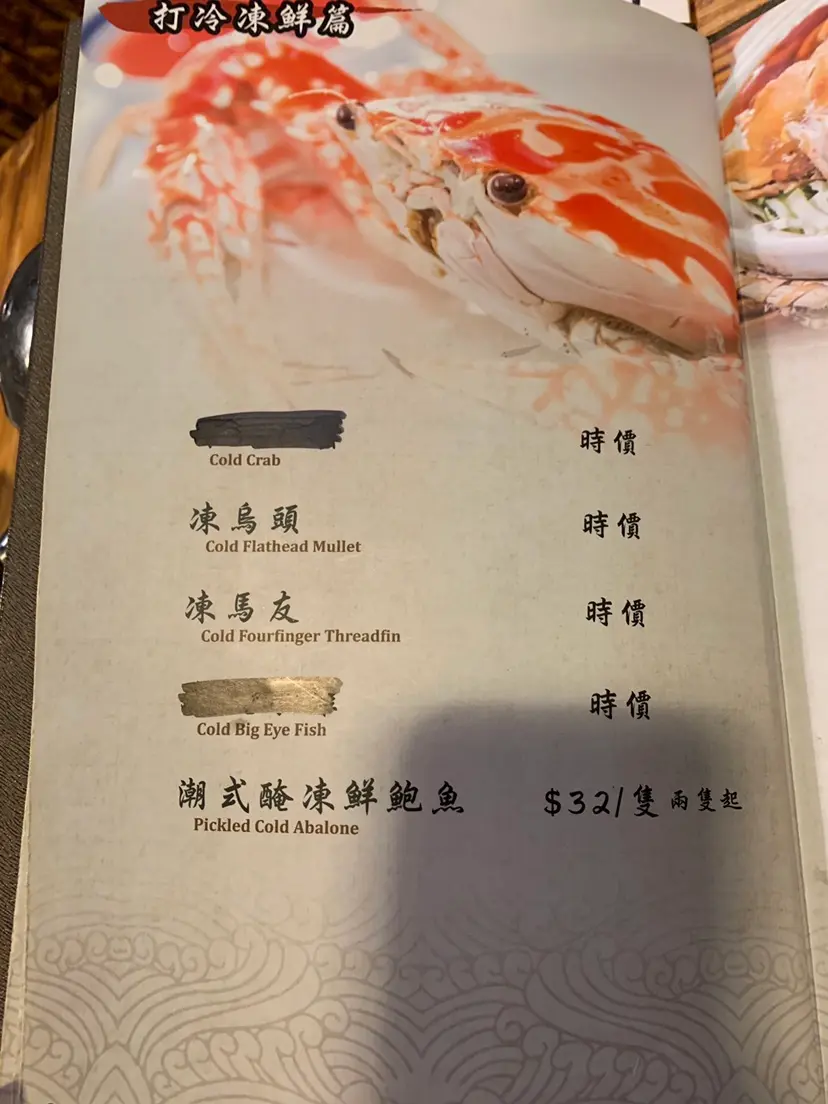 打冷凍鮮篇
時價
Cold Crab
凍烏頭 時價
Cold Flathead Mullet
凍馬友 時價
Cold Fourfinger Threadfin
時價
Cold Big Eye Fish
潮式醃凍鮮鮑魚 $32/隻 兩隻起
Pickled Cold Abalone